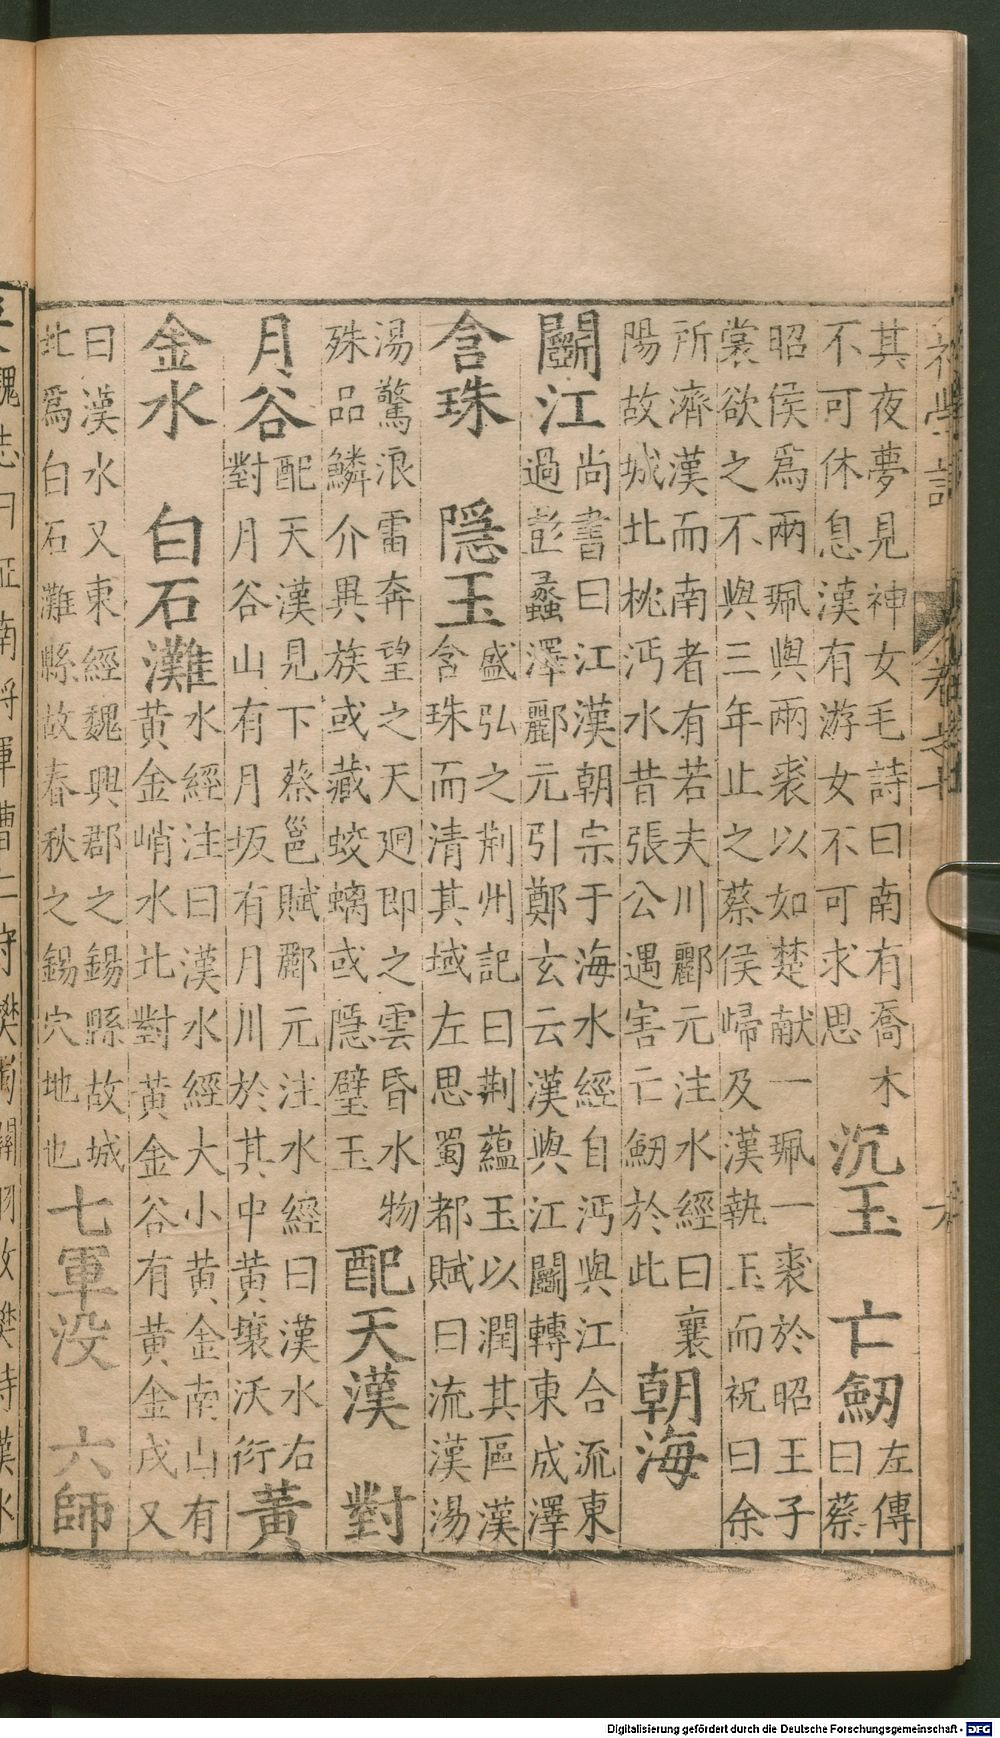 其夜夢見神女毛詩曰南有喬木
不可休息漢有游女不可求思
沉玉 亡劒
左傳
曰蔡
昭侯爲兩珮與兩裘以如楚献一珮一裘於昭王子
裳欲之不與三年止之蔡侯歸及漢執玉而祝曰余
所濟漢而南者有若夫川酈元注水經曰襄
陽故城北枕沔水昔張公遇害亡劒於此
朝海
鬬江
尚書曰江漢朝宗于海水經自沔與江合流東
過彭蠡澤酈元引鄭玄云漢與江鬬轉東成澤
含珠 隱玉
盛弘之荆州記曰荆蘊玉以潤其區漢
含珠而清其域左思蜀都賦曰流漢湯
湯驚浪雷奔望之天廻即之雲昏水物
殊品鱗介異族或藏蛟螭或隱璧玉
配天漢 對
月谷
配天漢見下蔡邕賦酈元注水經曰漢水右
對月谷山有月坂有月川於其中黄壤沃衍
黃
金水 白石灘
水經注曰漢水經大小黄金南山有
黄金峭水北對黄金谷有黄金戍又
曰漢水又東經魏興郡之錫縣故城
北爲白石灘縣故春秋之錫穴地也
七軍没 六師
魏志曰征南將軍曹仁守樊
Digitalisierung gefördert durch die Deutsche Forschungsgemeinschaft - DFG